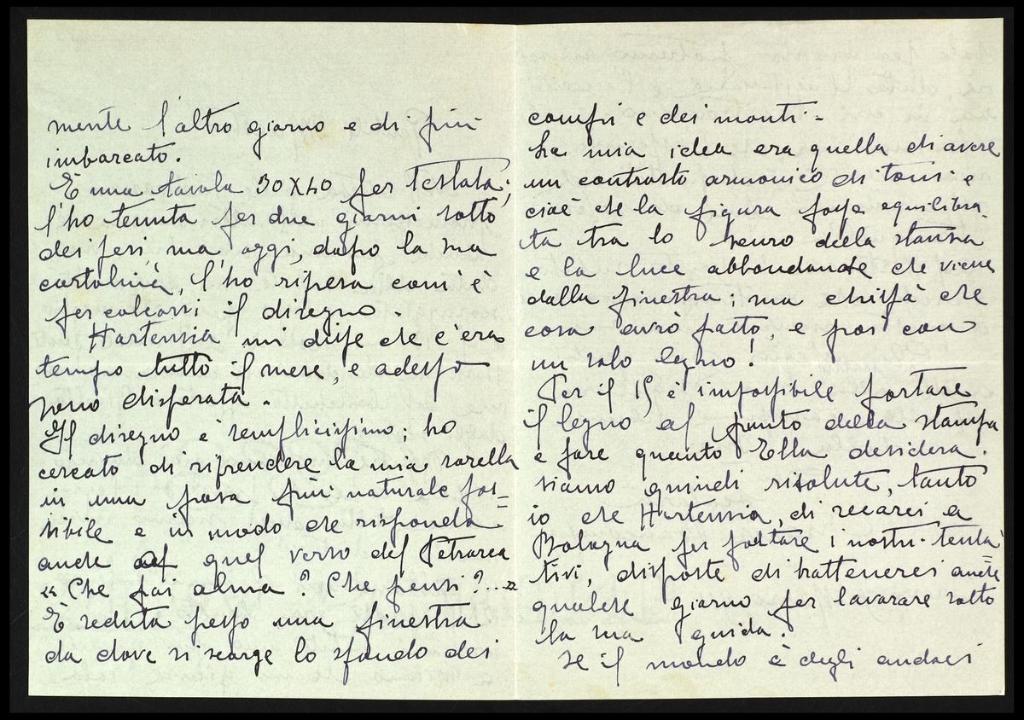 mente l'altro giorno e di più
imbarcato.
È una tavola 30X40 per testata;
l'ho tenuta per due giorni sotto
dei pesi, ma oggi, dopo la sua
cartolina, l'ho ripresa com'è
per calcarvi il disegno.
Hortensia mi disse che c'era
tempo tutto il mese, e adesso
sono disperata.
Il disegno è semplicissimo; ho
cercato di riprendere la mia sorella
in una posa più naturale pos=
sibile e in modo che risponda
anche a quel verso del Petrarca
"Che fai alma? Che pensi?..."
È seduta presso una finestra
da dove si scorge lo sfondo dei
campi e dei monti.-
La mia idea era quella di avere
un contrasto armonico di toni e
cioè che la figura fosse equilibra-
ta tra lo scuro della stanza
e la luce abbondante che viene
dalla finestra; ma chissà che
cosa avrò fatto, e poi con
un solo legno!
Per il 15 è impossibile portare
il legno al punto della stampa
e fare quanto Ella desidera.
Siamo quindi risolute, tanto
io che Hortensia, di recarci a
Bologna per portare i nostri tenta
tivi, disposte di trattenerci anche
qualche giorno per lavorare sotto
la sua guida.
Se il mondo è degli audaci